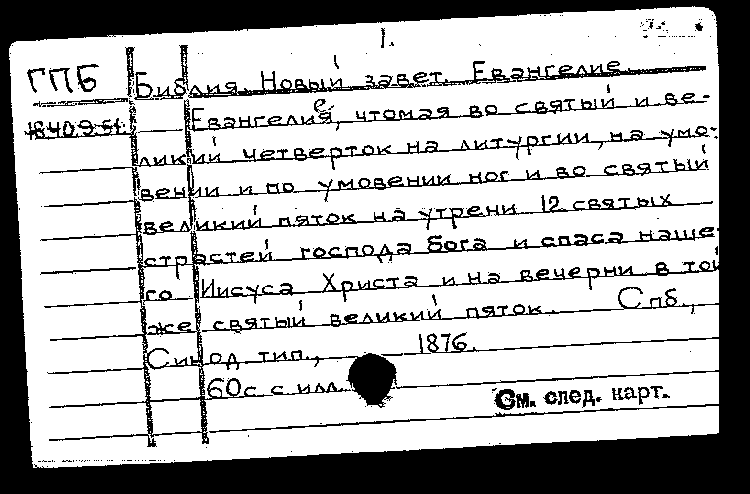 1.
ГПБ
Библия. Новый завет. Евангелие.
18.40.9.51.
Евангелие, чтомая во святый и ве-
ликий четверток на литургии, на умо-
вении и по умовении ног и во святый
великий пяток на утрени 12 святых
страстей господа бога и спаса наше-
го Иисуса Христа и на вечерни в той
же святый великий пяток. Спб.,
Синод. тип., 1876.
60с. с илл.
См. след. карт.